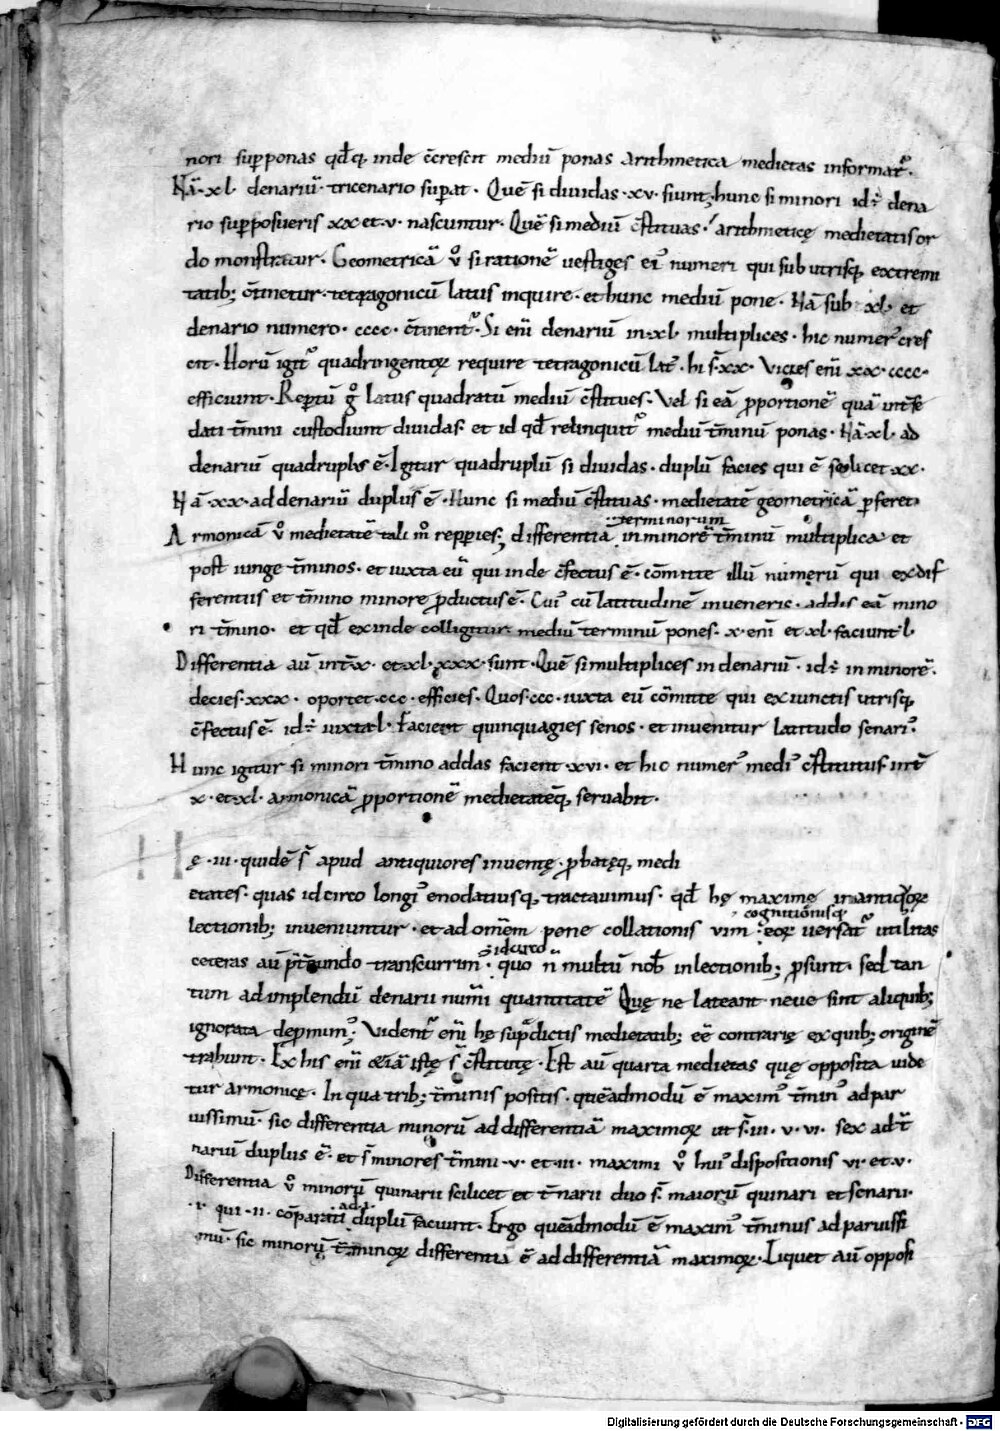 nori sup̱ponas qđq, inde c̄crescit mediū ponas arithmetica medietas informat᷑.
Nā·xl· denariū·tricenario sup̱at· Quē si diuidas·xv· fiunt; hunc si minori id·ē· dena
rio sup̱posueris xx et·v· nascuntur· Quē si mediū c̄stituas· arithmeticę medietatis or
do monstratur· Geometricā v̊ si rationē uestiges ei᷒ numeri qui sub utrisq, extremi
tatib; c̄tinetur·tetragonicū latus inquire·et hunc mediū pone· Nā sub xl· et
denario numero·cccc·c̄tinent᷑· Si eni̅ denariū in·xl· multiplices·hic numer᷒ cres
cit· Horū igit᷑ quadringentoꝝ require tetragonicū lat᷒·hi s̄·xx· Vicies eni̅ xx·cccc·
efficiunt· Rep̱tū g̊ latus quadratū mediū c̄stitues· Vel si eā ꝓportionē quā int̄ se
dati t̄mini custodiunt diuidas· et id qđ relinquit᷑ mediū t̄minū ponas· Nā·xl· ad
denariū quadruplus ē· Igitur quadruplū si diuidas·duplū facies qui ē scilicet xx·
Nā·xx·ad denariū duplus ē· Hunc si mediū c̄stituas·medietatē geometricā p̱feret·
terminorum
Armonicā v̊ medietatē tali m̊ rep̱pies; differentiā in minorē t̄minū multiplica et
post iunge t̄minos·et iuxta eū qui inde c̄fectus ē·cōmitte illū numerū qui ex dif
ferentiis et t̄mino minore ꝓductus ē· Cui᷒ cū latitudinē inueneris·addis eā mino
ri t̄mino· et qđ exinde colligitur mediū terminū pones· x·eni̅ et·xl·faciunt·l·
Differentia aū int̄·x· et·xl·xxx·sunt· Quē si multiplices in denariū·id·ē· in minorē·
decies·xxx· oportet·ccc·efficies· Quos·ccc·iuxta eū cōmitte qui ex iunctis utrisq,
c̄fectus ē· id·ē· iuxta·l· Facient quinquagies senos·et inuenitur latitudo senari᷒·
Hunc igitur si minori t̄mino addas facient·xvi· et hic numer᷒ medi᷒ c̄stitutus int̄
x·et·xl· armonicā ꝓportionē medietatēq, seruabit·
Hę·iii·quidē s̄ apud antiquiores inuentę·ꝓbatęq, medi
etates·quas idcirco longi᷒ enodatiusq, tractauimus· qđ hę maximę in antiquoꝝ
cognitionisq
lectionib; inueniuntur·et ad omēm pene collationis vim eoꝝ uersat᷑ utilitas
idcirco
ceteras aū p̄t̄eundo transcurrim᷒·quo n̄ multū nob̄ in lectionib; ꝓsunt· sed tan
tum ad implendū denarii num̄i quantitatē Quę ne lateant neue sint aliquib;
ignorata dep̱mim᷒; Vident᷑ eni̅ hę sup̱dictis medietatib; eē contrarię ex quib; originē
trahunt· Ex his eni̅ etiā istę s̄ c̄stitutę· Est aū quarta medietas quę opposita uide
tur armonicę· In qua trib; t̄minis positis·quēadmodū ē maxim᷒ t̄min᷒ ad par
uissimū·sic differentia minorū ad differentiā maximoꝝ ut s̄·iii·v·vi· sex ad t̄
nariū duplus ē· et s̄ minores t̄mini·v·et·iii· maximi v̊ hui᷒ dispositionis vi·et·v·
Differentia v̊ minorū quinarii scilicet et t̄narii duo s̄ maiorū quinari et senarii·
ad·i·
·i· qui·ii·cōparati duplū faciunt· Ergo quēadmodū ē maxim᷒ t̄minus ad paruissi
mū·sic minorū t̄minoꝝ differentia ē ad differentiā maximoꝝ· Liquet aū opposi
Digitalisierung gefördert durch die Deutsche Forschungsgemeinschaft - DFG